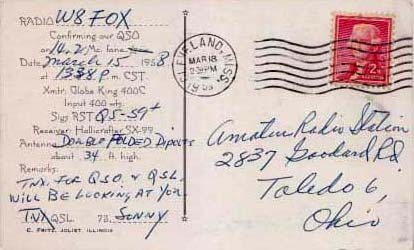 RADIO W8FOX
Confirming our QSO
on 14.2 Mc.
Date March 15 1958
at 1238 P.m. CST
Xmtr. Globe King 400C
Input 400 wtts.
Sigs RST Q5-S9+
Receiver Hallicrafter SX-99
Antenna DOUBLE FOLDED Dipoles
about 34 ft. high.
Remarks:
TNX. FOR QSO & QSL.
WILL BE LOOKING AT YOU.
TNX QSL 73, SONNY
C. FRITZ, JOLIET, ILLINOIS
CLEVELAND, MISS.
MAR 18
PM
2¢
Amateur Radio Station
2837 Goddard Rd
Toledo 6,
Ohio